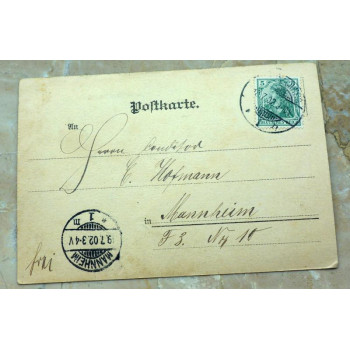 Postkarte.
An
Herrn Conditor
C. Hofmann
in Mannheim
F 3. No 10
frei
MANNHEIM
9.7.02.3-4 V
* 1 m
5 5